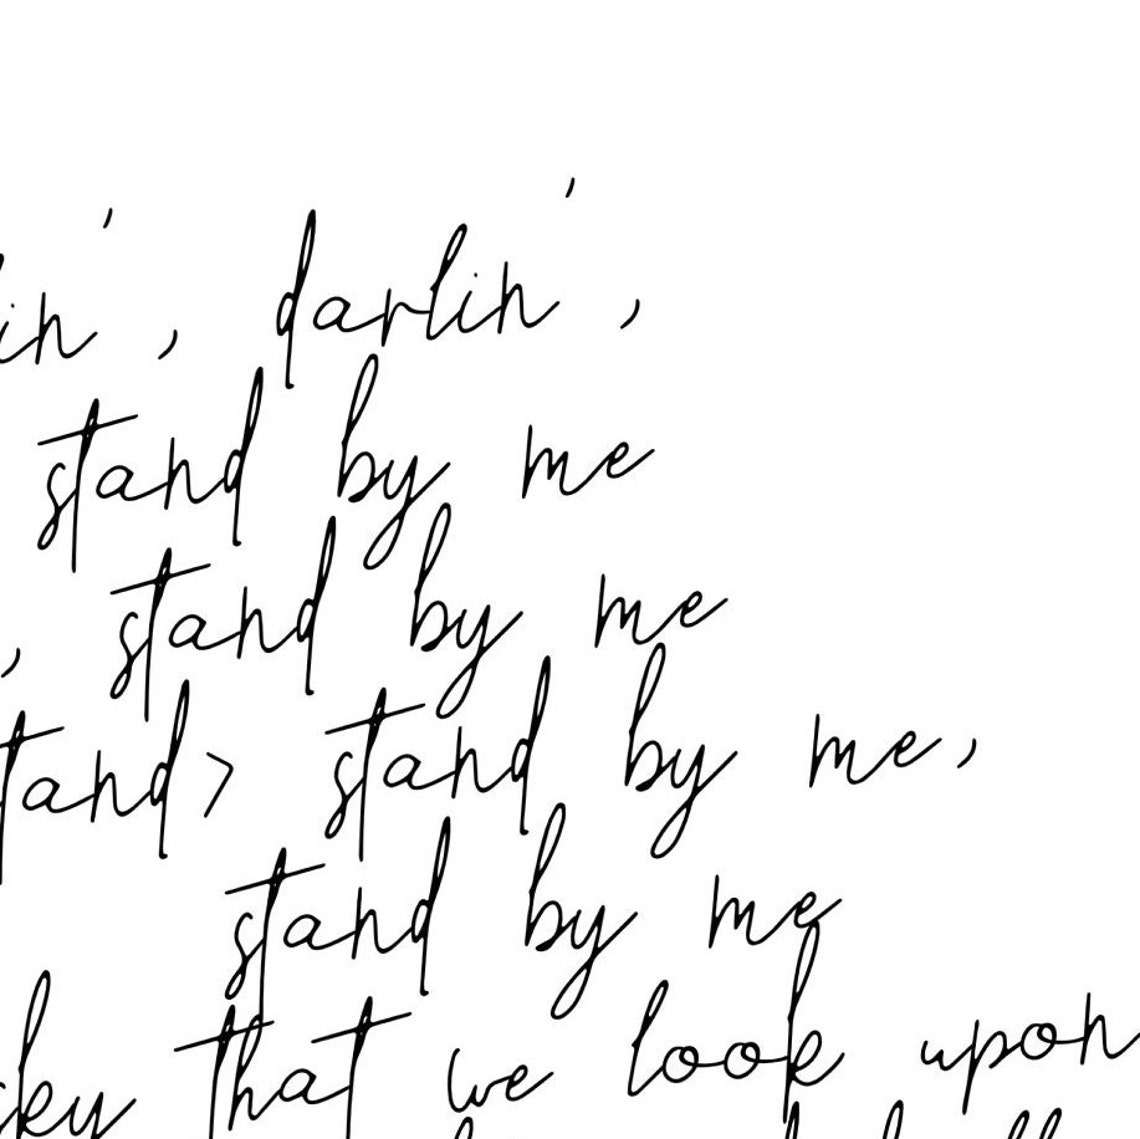 in', darlin',
stand by me
, stand by me
tand> stand by me,
stand by me
sky that we look upon